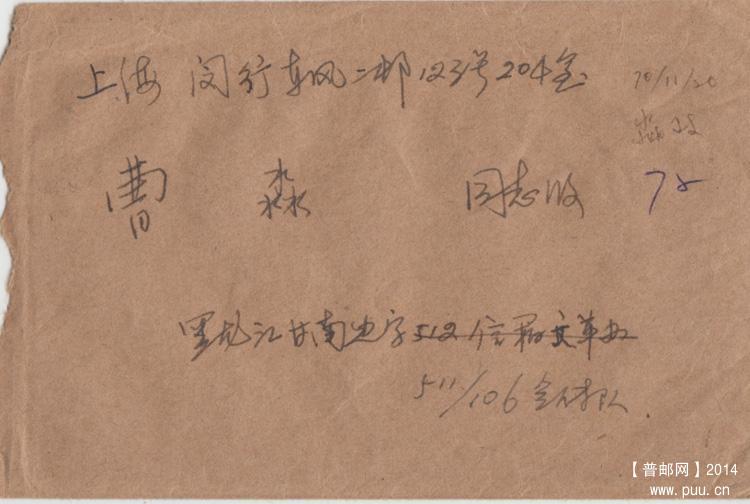 上海 闵行东风二邨123号204室
70/11/20
淼收
曹 淼 同志收
75
黑龙江甘南光字512信箱文革办
511/106
【普邮网】2014
www.puu.cn